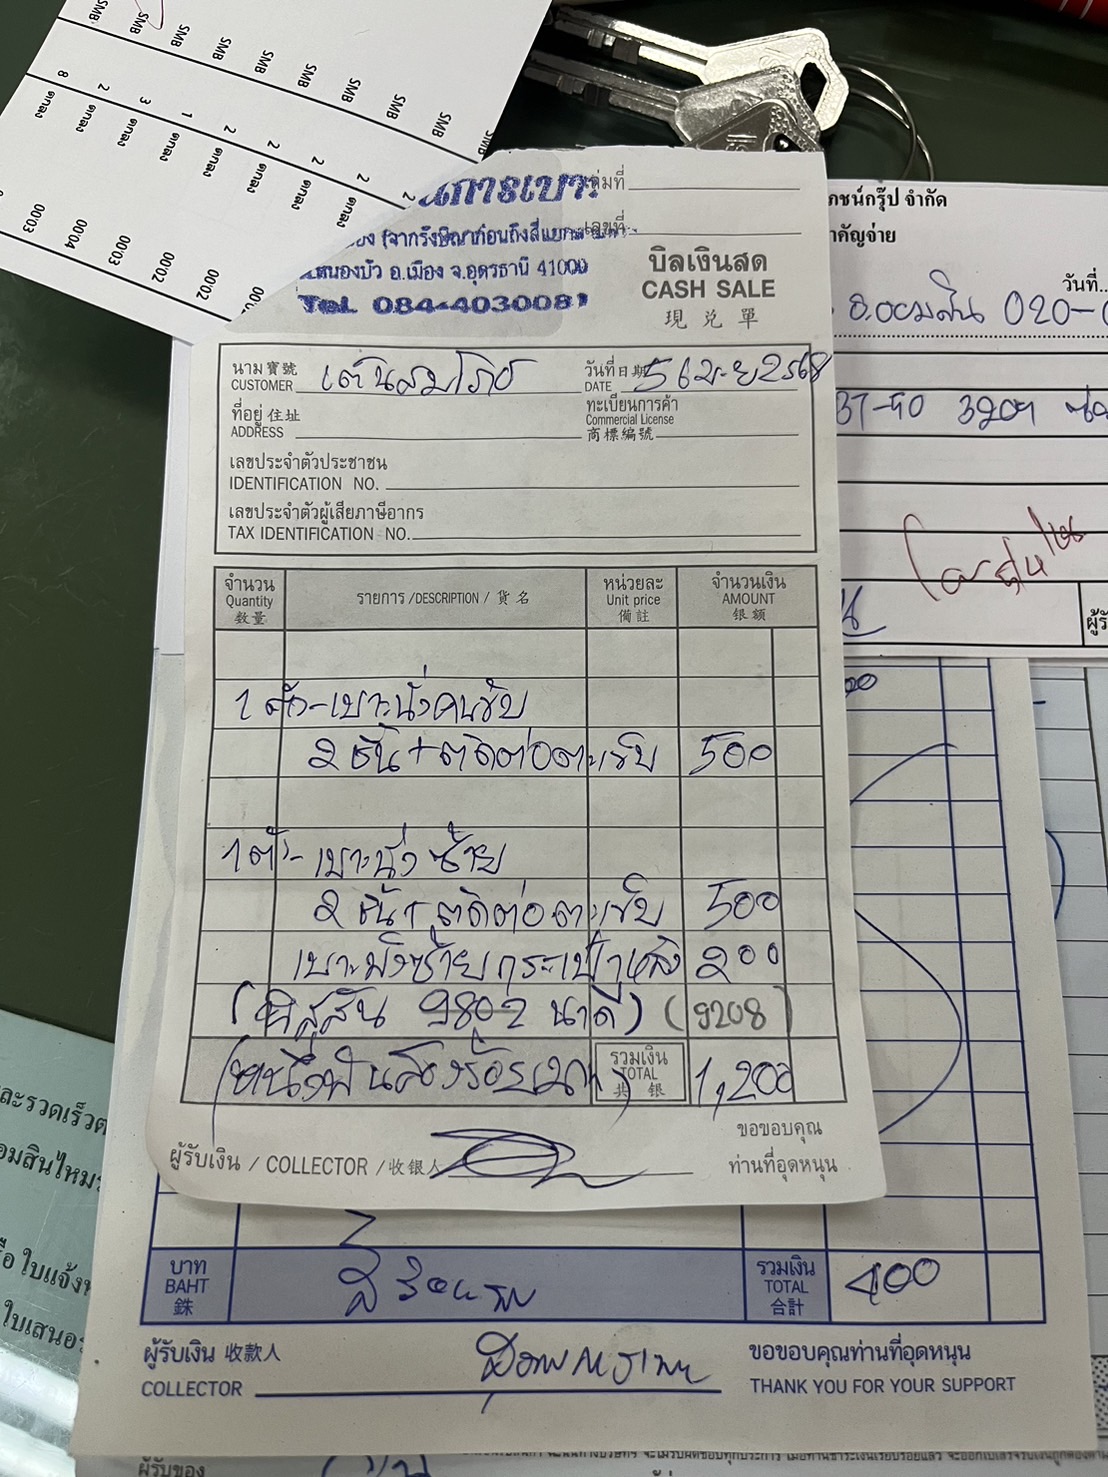 SMB
SMB
SMB
SMB
SMB
SMB
SMB
SMB
SMB
8 ตกลง
2 ตกลง
3 ตกลง
1 ตกลง
2 ตกลง
2 ตกลง
2 ตกลง
2
00'03
00'04
00'03
00'02
00'02
นการเบาะ
เล่มที่
(จากรังษิณาก่อนถึงสี่แยก
เลขที่
หนองบัว อ.เมือง จ.อุดรธานี 41000
Tel. 084-4030081
บิลเงินสด
CASH SALE
現兌單
นาม寶號
CUSTOMER
เต้นสมโภช
วันที่日期
DATE
5 เม.ย 2568
ที่อยู่住址
ADDRESS
ทะเบียนการค้า
Commercial License
商標編號
เลขประจำตัวประชาชน
IDENTIFICATION NO.
เลขประจำตัวผู้เสียภาษีอากร
TAX IDENTIFICATION NO.
จำนวน รายการ /DESCRIPTION / 貨名 หน่วยละ จำนวนเงิน
Quantity Unit price AMOUNT
數量 備註 銀額
1 ตัว-เบาะนั่งคนขับ
2 ชั้น + ตัดต่อตะเข็บ 500
1 ตัว- เบาะนั่ง ซ้าย
2 ชั้น + ตัดต่อ ตะเข็บ 500
เบาะนั่งซ้าย กระเป๋าหลัง 200
(อีสูสัน 9802 นาดี) (9208)
(หนึ่งพันสองร้อยบาท)
รวมเงิน
TOTAL
共銀
1,200
ขอขอบคุณ
ผู้รับเงิน / COLLECTOR / 收银人
ท่านที่อุดหนุน
ภชน์กรุ๊ป จำกัด
สำคัญจ่าย
วันที่..
อ.ออมสิน 020-0
37-40 3209
บาท
BAHT
銖
สี่ร้อยบาท
รวมเงิน
TOTAL
合計
400
ผู้รับเงิน 收款人
COLLECTOR
ขอขอบคุณท่านที่อุดหนุน
THANK YOU FOR YOUR SUPPORT
ผู้รับของ
และรวดเร็ว
อมสินไหม
ือ ใบแจ้ง
ใบเสนอ